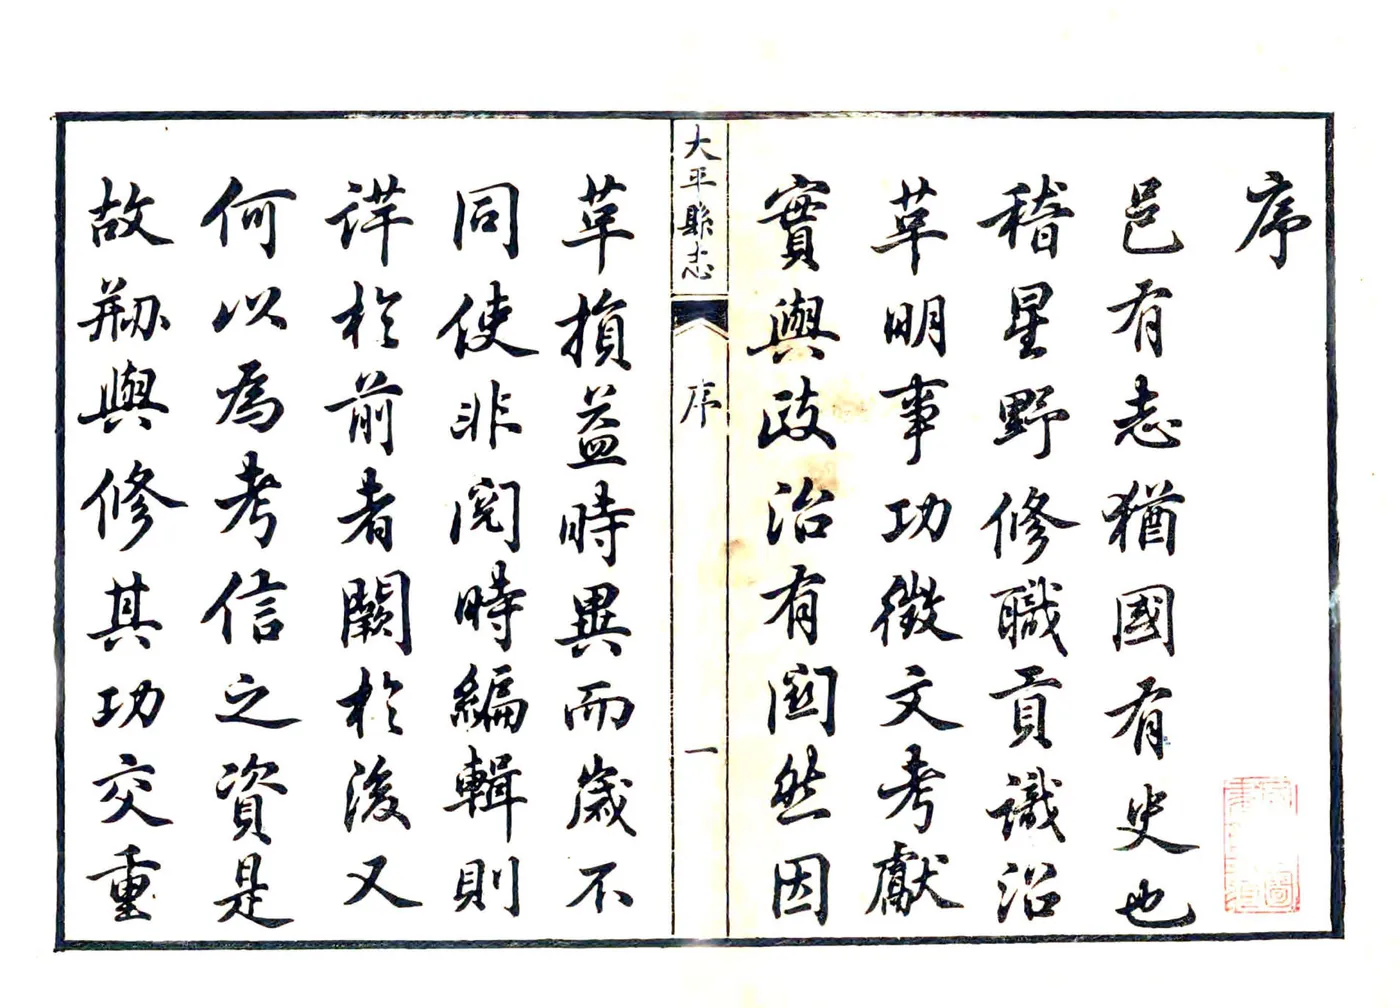 序
邑有志猶國有史也
稽星野修職貢識沿
革明事功徵文考獻
實與政治有関然因
大平縣志
序
一
革損益時異而歲不
同使非閱時編輯則
詳於前者闕於後又
何以為考信之資是
故剏與修其功交重